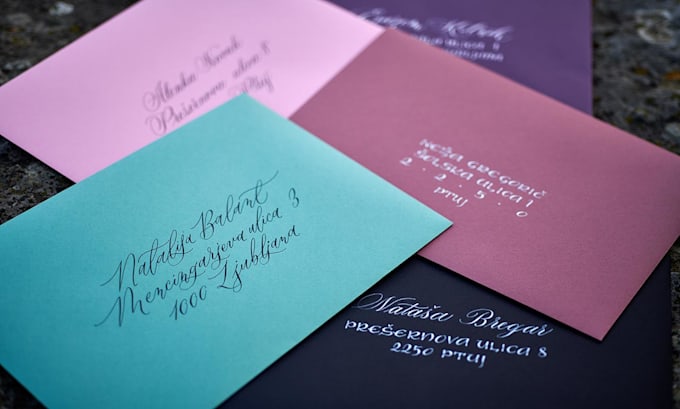 Prešernova ulica 8
Ptuj
NEŽA GREGORIČ
ŠOLSKA ULICA 1
2 · 2 · 5 · 0
PTUJ
Natalija Balant
Mencingarjeva ulica 3
1000 Ljubljana
Nataša Bregar
PREŠERNOVA ULICA 8
2250 PTUJ